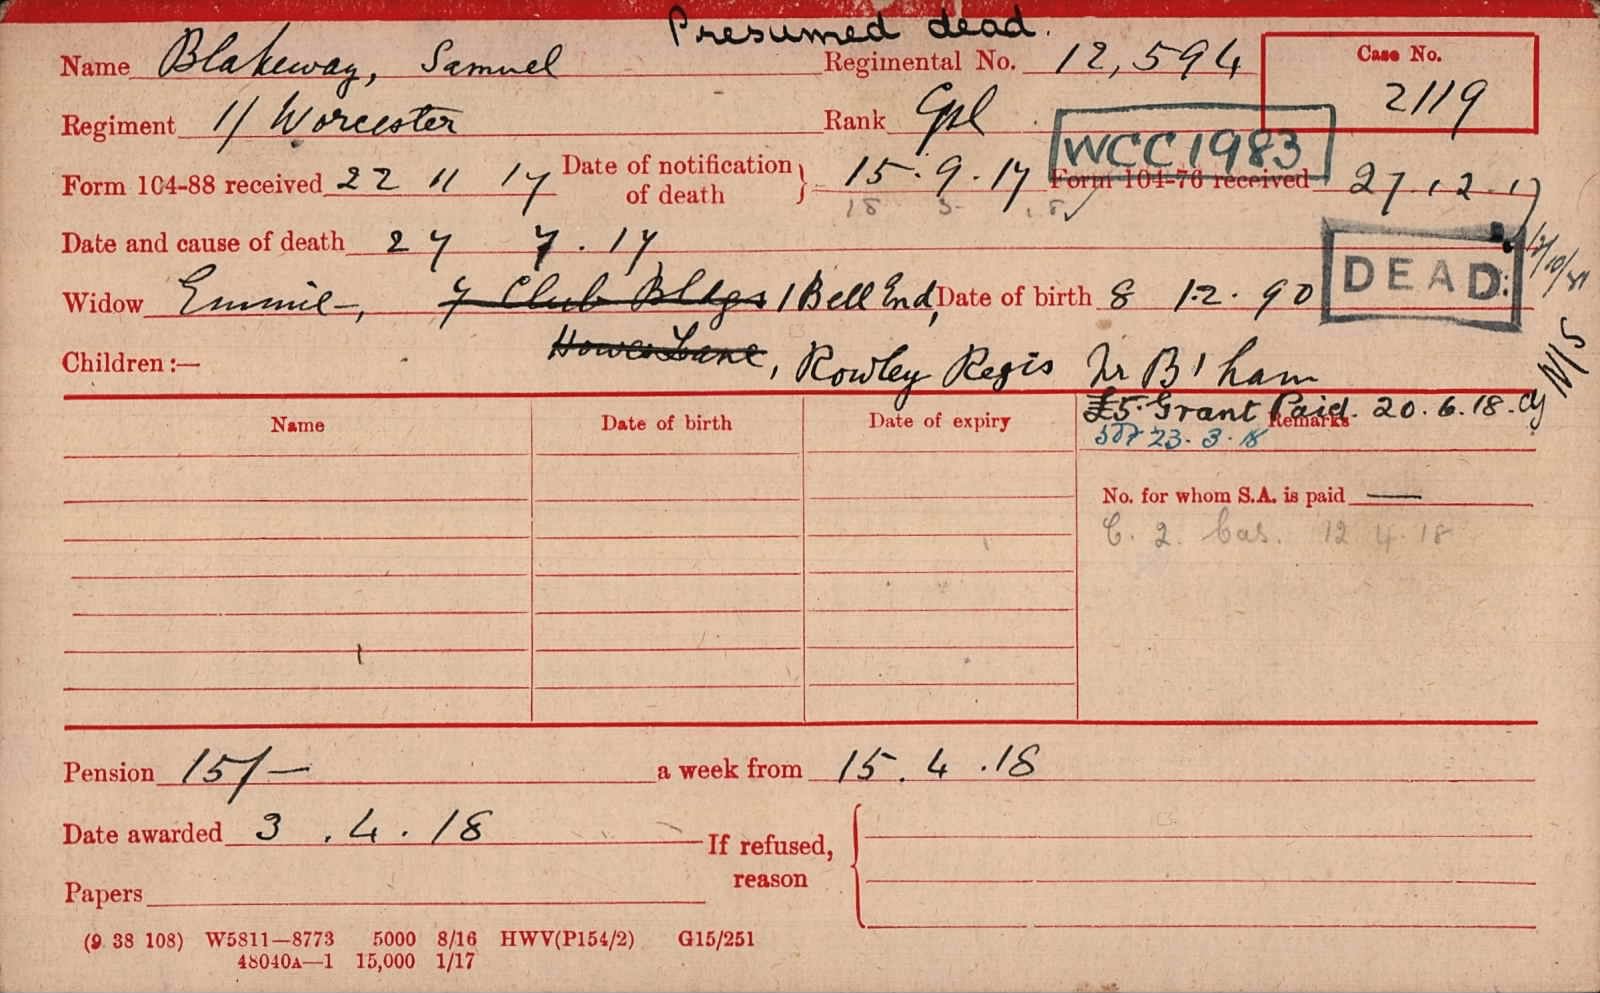 Presumed dead.
Name Blakeway, Samuel Regimental No. 12,594 Case No. 2119
Regiment 1/ Worcester Rank Cpl WCC 1983
Form 104-88 received 22 11 17 Date of notification of death } 15.9.17 Form 104-76 received 27.12.17
18 3
Date and cause of death 27 7.17
Widow Emmie, 7 Club Bldgs 1 Bell End, Date of birth 8 12.90 DEAD. 12/10/31
Children :— Howes Lane, Rowley Regis Nr B'ham N/S
£5. Grant Paid. 20.6.18.
Name Date of birth Date of expiry Remarks
23.3.18
No. for whom S.A. is paid —
C. 2. Cas. 12 4.18
Pension 15/— a week from 15.4.18
Date awarded 3.4.18 If refused, reason
Papers
(9 38 108) W5811—8773 5000 8/16 HWV(P154/2) G15/251
48040A—1 15,000 1/17